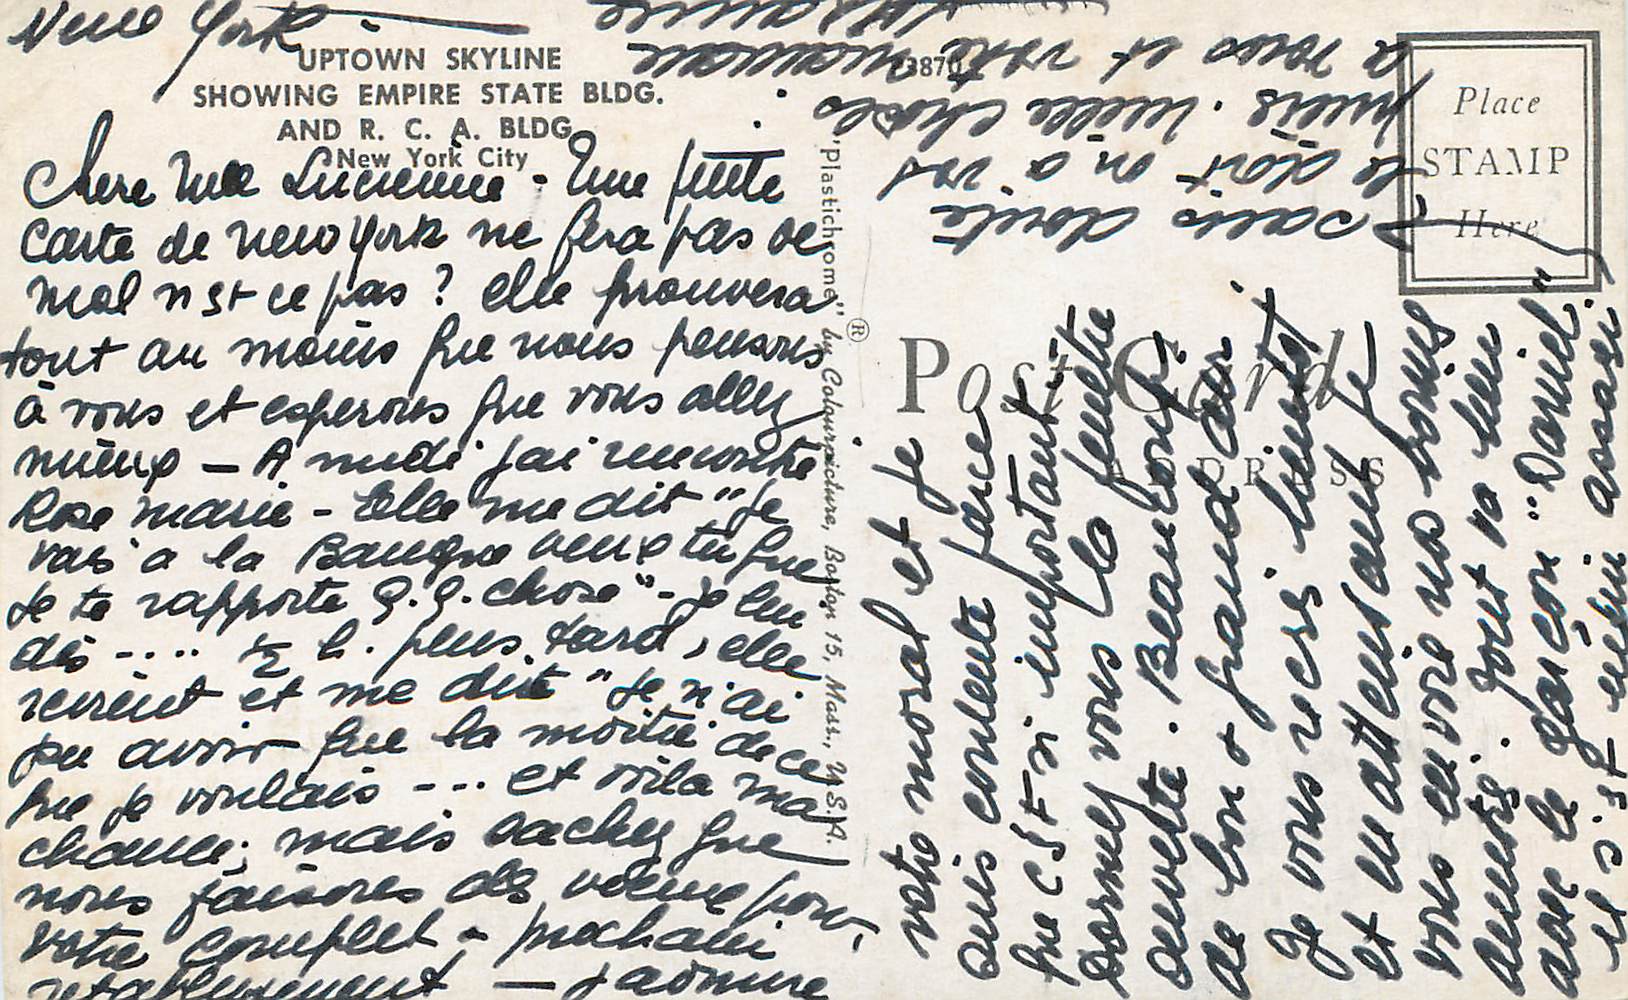 New York
UPTOWN SKYLINE
SHOWING EMPIRE STATE BLDG.
AND R. C. A. BLDG.
New York City
Chere Mme Lucienne - Une petite
carte de New York ne fera pas de
mal n'est ce pas ? elle prouvera
tout au moins que nous pensons
à vous et esperons que vous allez
mieux — A midi j'ai rencontré
Rose Marie - Elle me dit "je
vais à la Banque veux tu que
je te rapporte q.q. chose" - je lui
dis ---.. ½ h. plus tard, elle
revient et me dit "je n'ai
pu avoir que la moitié de ce
que je voulais --.. et voila ma
chance; mais sachez que
nous faisons des voeux pour
votre complet & prochain
retablissement — j'admire
"Plastichrome" ® by Colourpicture, Boston 15, Mass., U.S.A.
Place
STAMP
Here
Post Card
ADDRESS
votre moral et je
suis contente parce
que c'est si important
Dormez vous la fenetre
ouverte. Beaucoup
de bon & grand air
Je vous verrai bientot
et en attendant je
vous envoie nos bonnes
amitiés. Tout va bien
avec le garçon "Daniel"
il s'est enfin assagi
sans doute
le doit on à vos
. Mille choses
a vous et votre